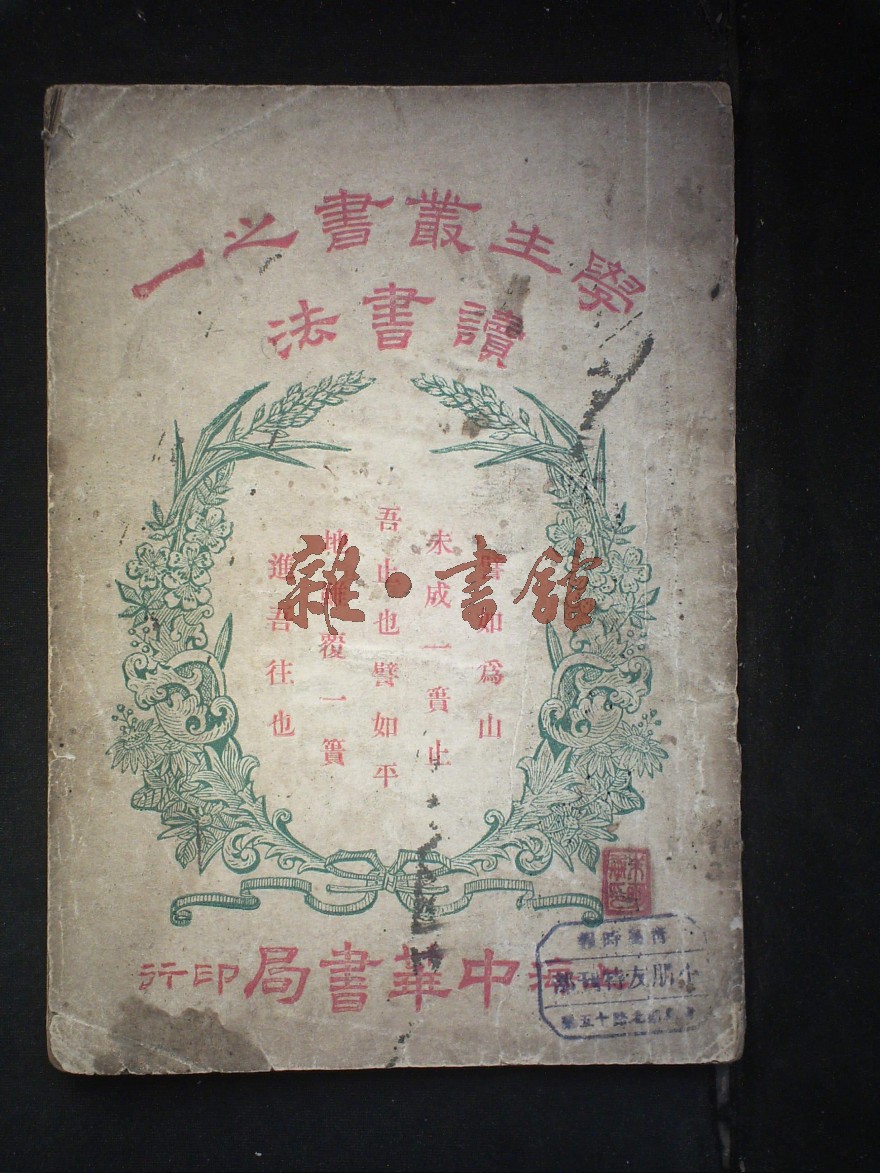 學生叢書之一
讀書法
譬如爲山
未成一簣止
吾止也譬如平
地雖覆一簣
進吾往也
雜·書館
中華書局印行